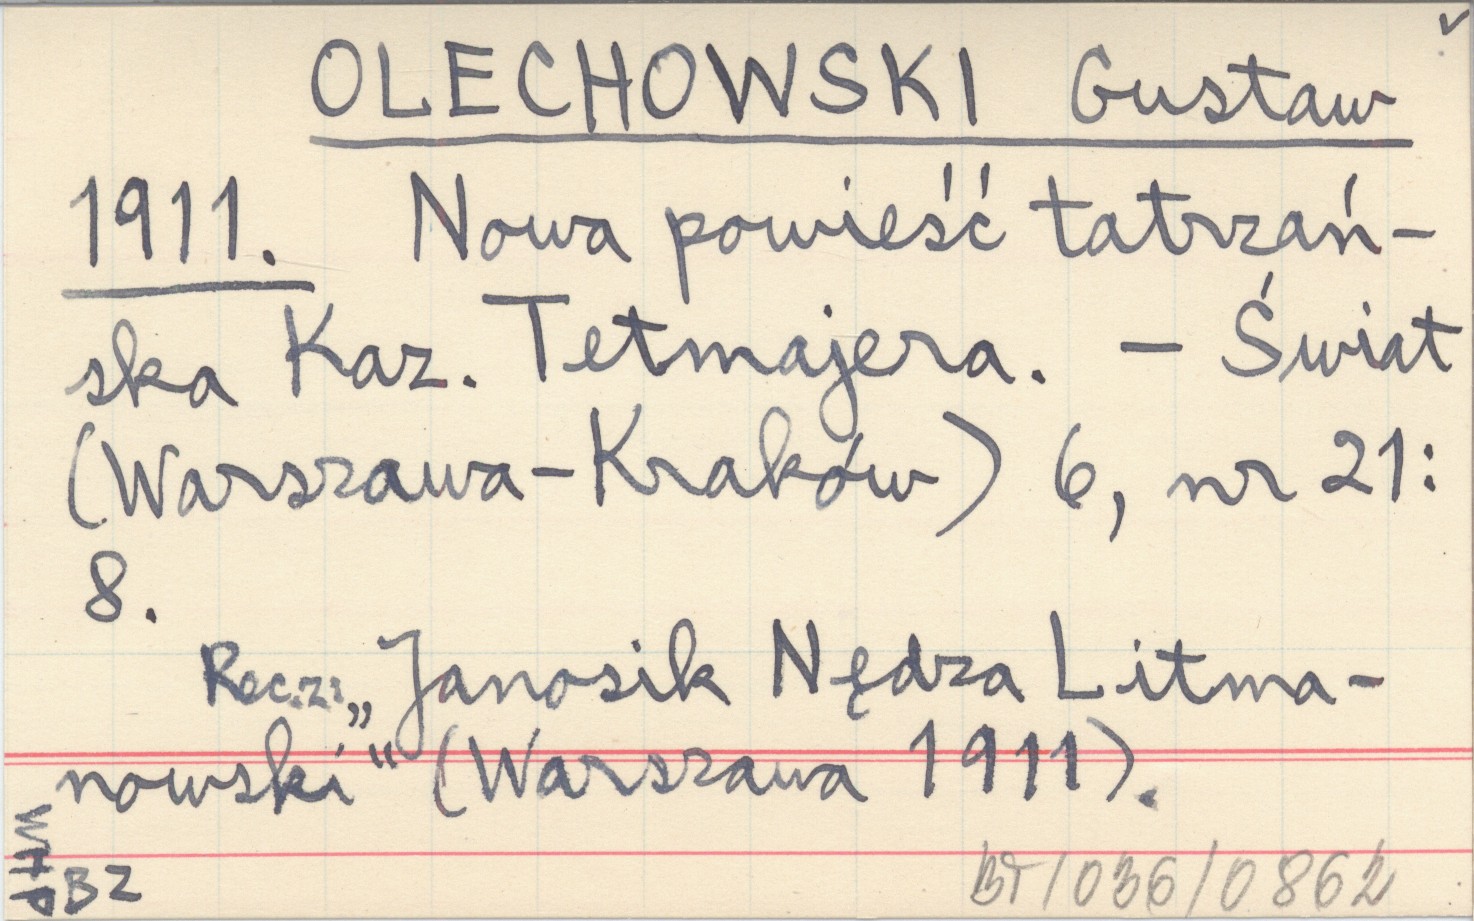 OLECHOWSKI Gustaw
1911. Nowa powieść tatrzań-
ska Kaz. Tetmajera. – Świat
(Warszawa-Kraków) 6, nr 21:
8.
Rec.z: „Janosik Nędza Litma-
nowski" (Warszawa 1911).
BZ
BT/036/0862